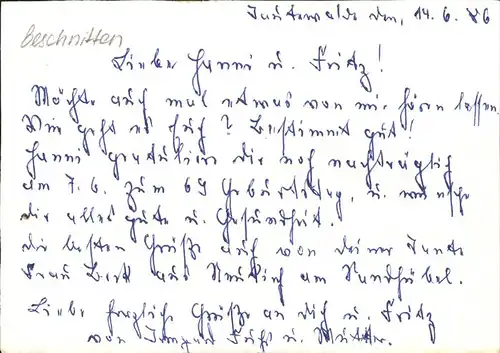 den, 14. 6. 86
beschnitten
Liebe Hanni u. Fritz!
Möchte auch mal etwas von mir hören lassen.
Wie geht es Euch? Bestimmt gut!
Hanni gratuliere dir noch nachträglich
am 7. 6. zum 69 Geburtstag, u. wünsche
dir alles gute u. Gesundheit.
die besten Grüße auch von deiner Tante
Frau Berta aus am
Liebe herzliche Grüße an dich u. Fritz
von Irmgard u. Mutter.